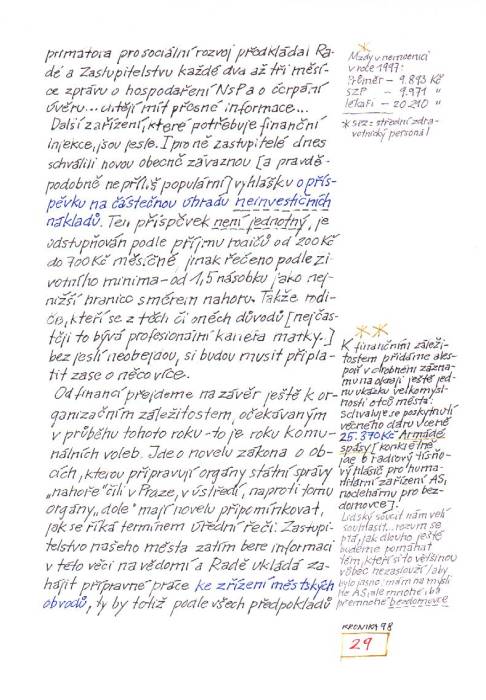 primátora pro sociální rozvoj předkládal Ra-
dě a Zastupitelstvu každé dva až tři měsí-
ce zprávu o hospodaření NsPa o čerpání
úvěru... chtějí mít přesné informace...
Další zařízení, které potřebuje finanční
injekce, jsou jesle. I pro ně zastupitelé dnes
schválili novou obecně závaznou [a pravdě-
podobně ne příliš populární] vyhlášku o přís-
pěvku na částečnou úhradu neinvestičních
nákladů. Ten příspěvek není jednotný, je
odstupňován podle příjmu rodičů od 200 Kč
do 700 Kč měsíčně, jinak řečeno podle ži-
votního minima - od 1,5 násobku jako nej-
nižší hranice směrem nahoru. Takže rodi-
če, kteří se z těch či oněch důvodů [nejčas-
těji to bývá profesionální kariéra matky.]
bez jeslí neobejdou, si budou muset připla-
tit zase o něco více.
Od financí přejdeme na závěr ještě k or-
ganizačním záležitostem, očekávaným
v průběhu tohoto roku - to je roku komu-
nálních voleb. Jde o novelu zákona o ob-
cích, kterou připravují orgány státní správy
„nahoře" čili v Praze, v ústředí, naproti tomu
orgány „dole" mají novelu připomínkovat,
jak se říká termínem úřední řeči. Zastupi-
telstvo našeho města zatím bere informaci
v této věci na vědomí a Radě ukládá za-
hájit přípravné práce ke zřízení městských
obvodů, ty by totiž podle všech předpokladů
Mzdy v nemocnici
v roce 1997:
Průměr - 9.893 Kč
SZP - 9.971 "
lékaři - 20.210 "
* SZP = střední zdra-
votnický personál
**
K finančním záleži-
tostem přidáme ales-
poň v drobném zázna-
mu na okraji ještě jed-
nu ukázku velkomysl-
nosti otců města:
schvaluje se poskytnutí
věcného daru v ceně
25.370 Kč Armádě
spásy [konkrétně
jde o radiový tísňo-
vý hlásič pro huma-
nitární zařízení AS,
noclehárnu pro bez-
domovce].
Lidský soucit nám velí
souhlasit... rozum se
ptá, jak dlouho ještě
budeme pomáhat
těm, kteří si to většinou
vůbec nezaslouží /aby
bylo jasno: mám na mysli
ne AS, ale mnohé, ba
přemnohé bezdomovce
KRONIKA 98
29